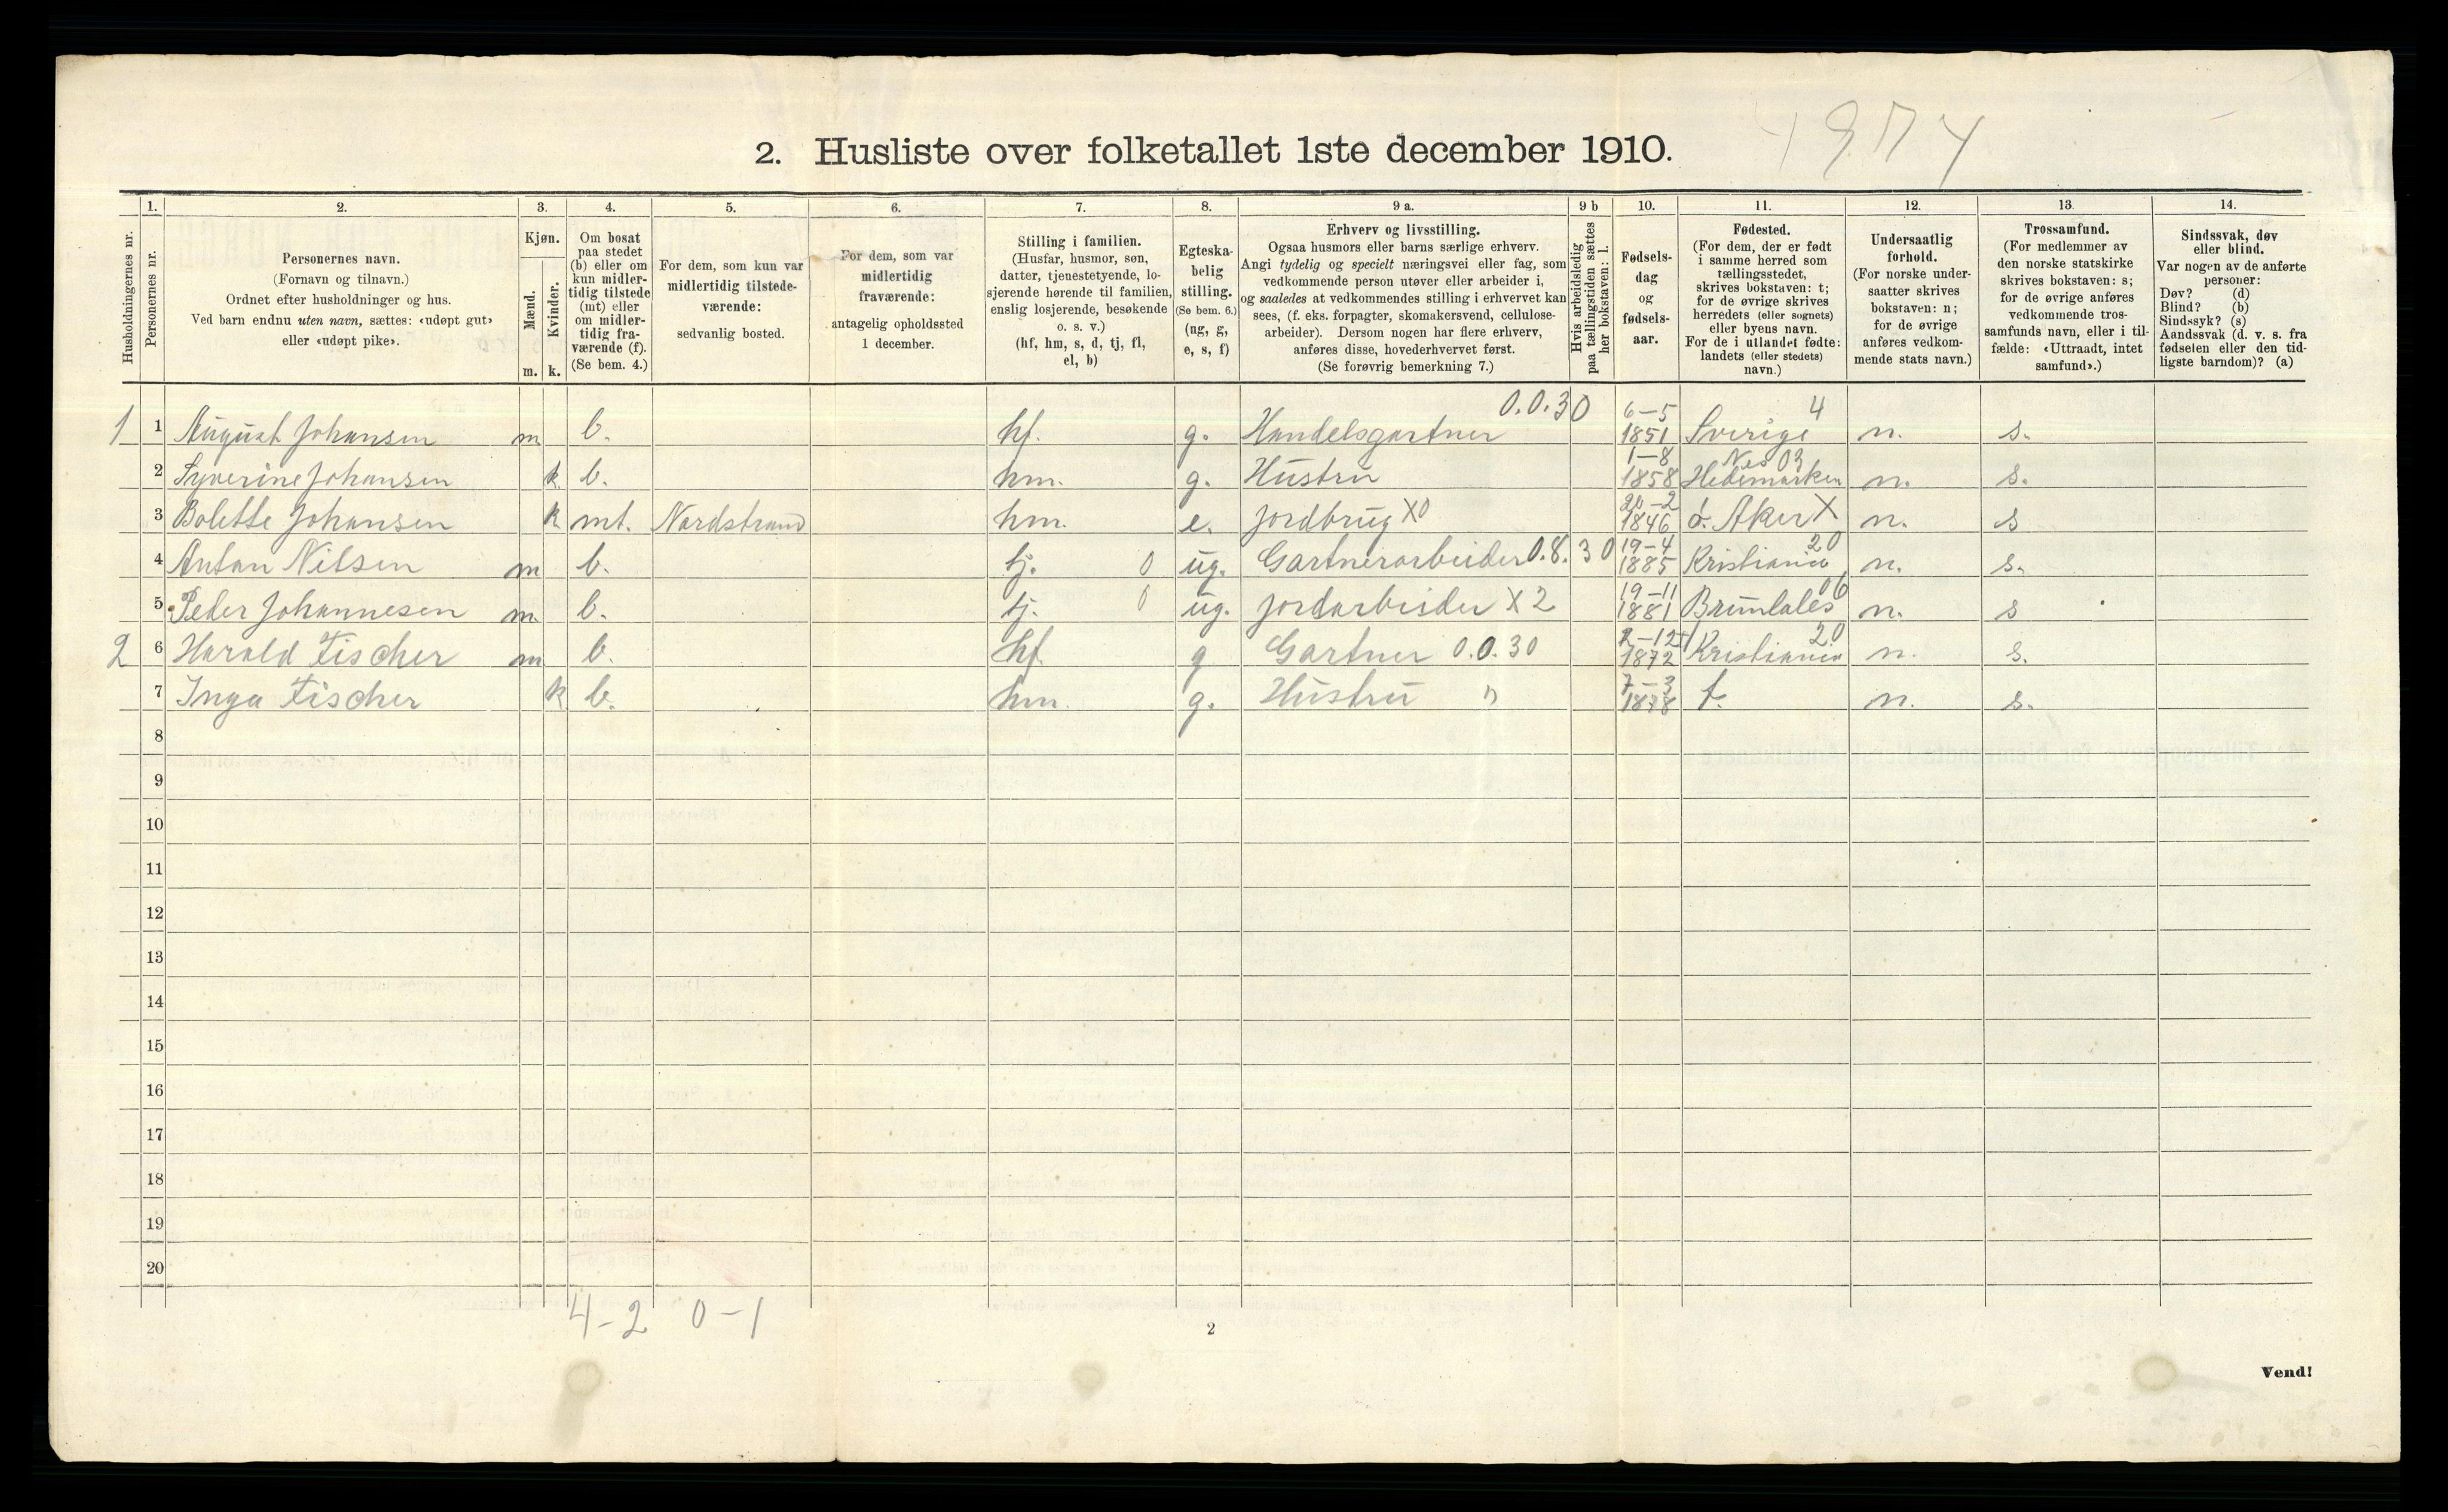 4974
2. Husliste over folketallet 1ste december 1910.
Husholdningernes nr.
1.
Personernes nr.
2.
Personernes navn.
(Fornavn og tilnavn.)
Ordnet efter husholdninger og hus.
Ved barn endnu uten navn, sættes: «udøpt gut»
eller «udøpt pike».
3.
Kjøn.
Mænd.
Kvinder.
m. k.
4.
Om bosat
paa stedet
(b) eller om
kun midler-
tidig tilstede
(mt) eller
om midler-
tidig fra-
værende (f).
(Se bem. 4.)
5.
For dem, som kun var
midlertidig tilstede-
værende:
sedvanlig bosted.
6.
For dem, som var
midlertidig
fraværende:
antagelig opholdssted
1 december.
7.
Stilling i familien.
(Husfar, husmor, søn,
datter, tjenestetyende, lo-
sjerende hørende til familien,
enslig losjerende, besøkende
o. s. v.)
(hf, hm, s, d, tj, fl,
el, b)
8.
Egteska-
belig
stilling.
(Se bem. 6.)
(ug, g,
e, s, f)
9 a.
Erhverv og livsstilling.
Ogsaa husmors eller barns særlige erhverv.
Angi tydelig og specielt næringsvei eller fag, som
vedkommende person utøver eller arbeider i,
og saaledes at vedkommendes stilling i erhvervet kan
sees, (f. eks. forpagter, skomakersvend, cellulose-
arbeider). Dersom nogen har flere erhverv,
anføres disse, hovederhvervet først.
(Se forøvrig bemerkning 7.)
9 b
Hvis arbeidsledig
paa tællingstiden sættes
her bokstaven: l.
10.
Fødsels-
dag
og
fødsels-
aar.
11.
Fødested.
(For dem, der er født
i samme herred som
tællingsstedet,
skrives bokstaven: t;
for de øvrige skrives
herredets (eller sognets)
eller byens navn.
For de i utlandet fødte:
landets (eller stedets)
navn.)
12.
Undersaatlig
forhold.
(For norske under-
saatter skrives
bokstaven: n;
for de øvrige
anføres vedkom-
mende stats navn.)
13.
Trossamfund.
(For medlemmer av
den norske statskirke
skrives bokstaven: s;
for de øvrige anføres
vedkommende tros-
samfunds navn, eller i til-
fælde: «Uttraadt, intet
samfund».)
14.
Sindssvak, døv
eller blind.
Var nogen av de anførte
personer:
Døv? (d)
Blind? (b)
Sindssyk? (s)
Aandssvak (d. v. s. fra
fødselen eller den tid-
ligste barndom)? (a)
0.0.30 6-5 4
1 1 August Johansen m b. hf. g. Handelsgartner 1851 Sverige n. s.
1-8 Nes 03
2 Syverine Johansen k b. hm. g. Hustru 1858 Hedemarken n. s.
20-2
3 Bolette Johansen k mt. Nordstrand hm. e. Jordbrug X0 1846 ó. Aker X n. s
19-4 20
4 Anton Nilsen m b. tj. 0 ug. Gartnerarbeider 0.8.30 1885 Kristiania n. s.
19-11 06
5 Peder Johannesen m. b. tj. 0 ug. Jordarbeider X2 1881 n. s
2-12 20
2 6 Harald Fischer m b. hf g Gartner 0.0.30 1872 Kristiania n. s.
7-3
7 Inga Fischer k b. hm. g. Hustru " 1878 t. n. s.
8
9
10
11
12
13
14
15
16
17
18
19
20
4-2 0-1
2
Vend!